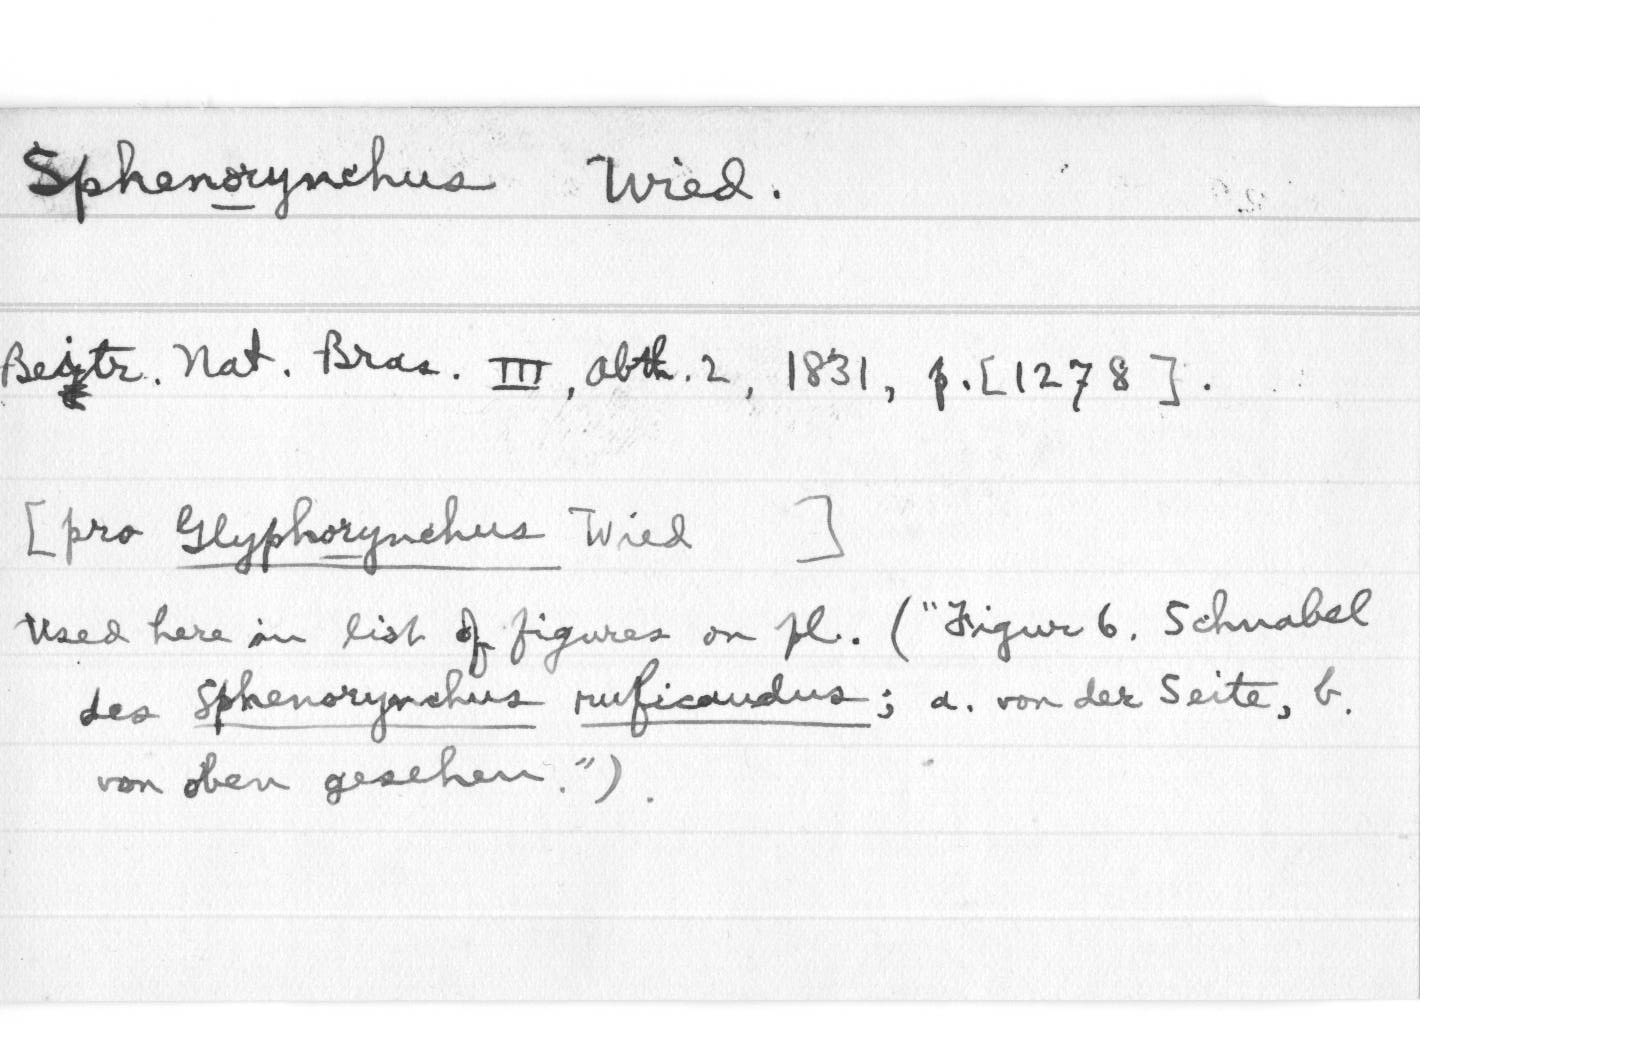 Sphenorynchus Wied.
Beitr. Nat. Bras. III, abth. 2, 1831, p. [1278].
[pro Glyphorynchus Wied ]
Used here in list of figures on pl. ("Figur 6. Schnabel
des Sphenorynchus ruficaudus; a. von der Seite, b.
von oben gesehen.").